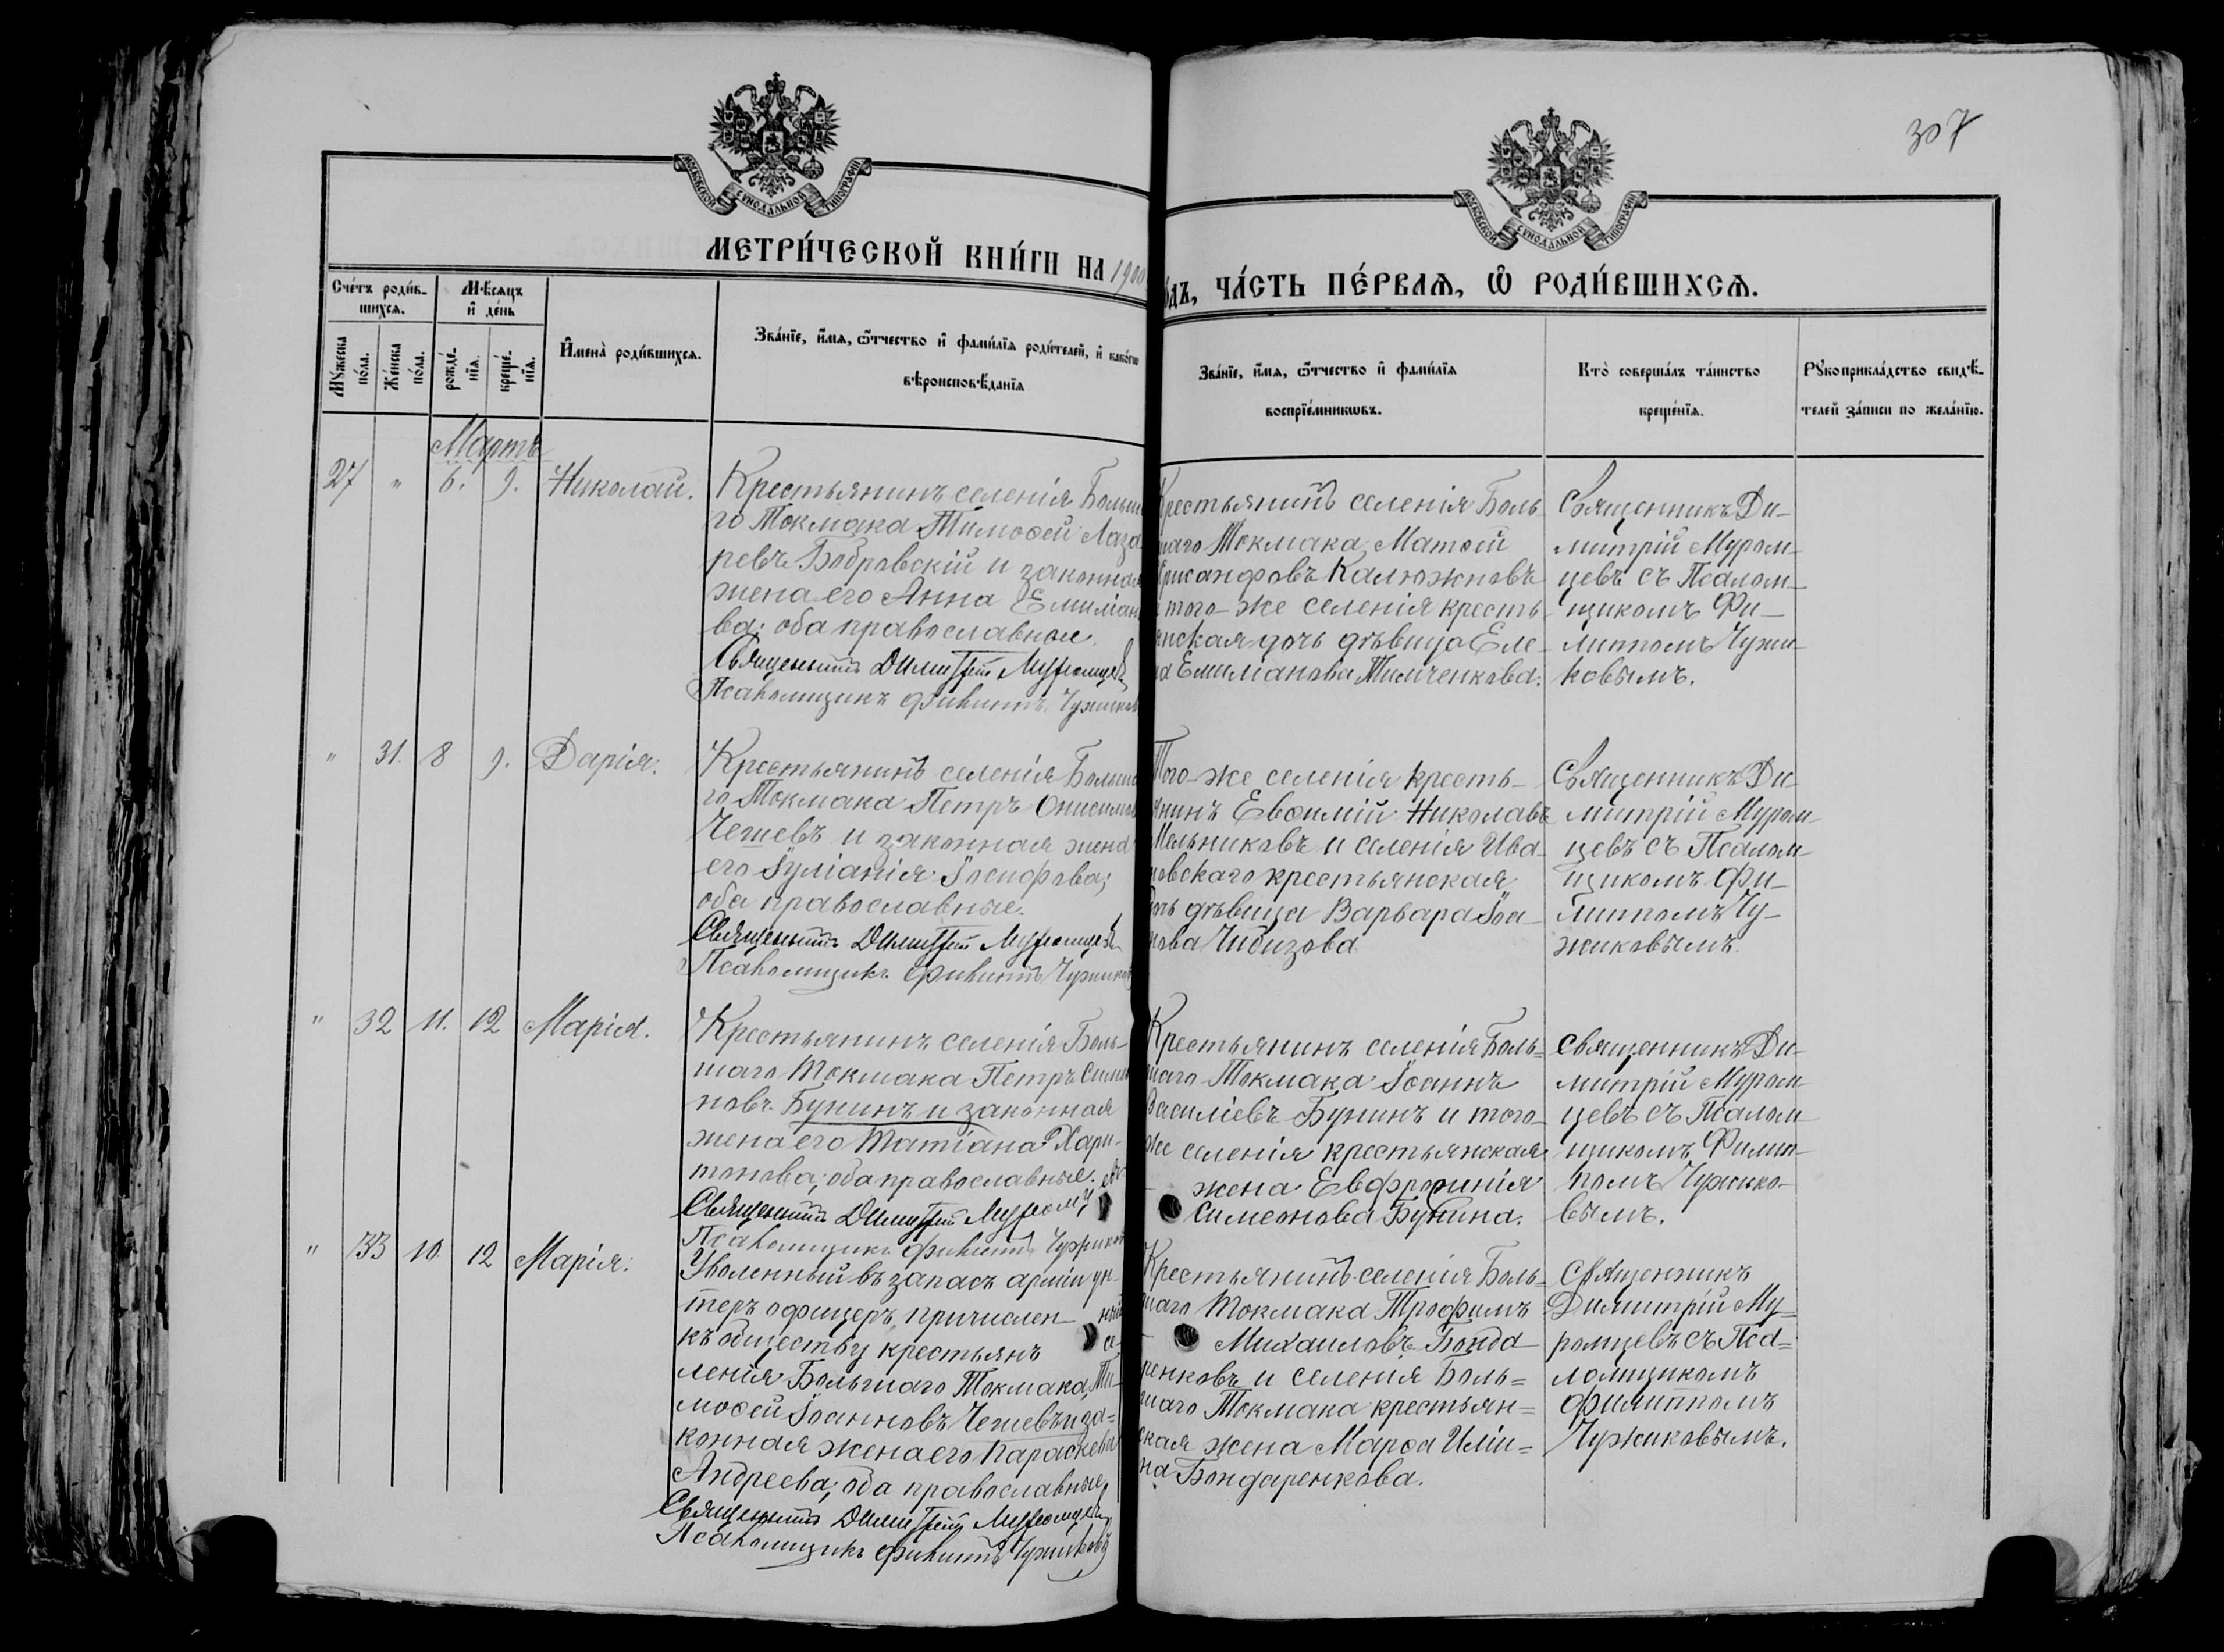 307
МОСКОВСКОЙ СѴНОДАЛЬНОЙ ТИПОГРАФІИ
МОСКОВСКОЙ СѴНОДАЛЬНОЙ ТИПОГРАФІИ
МЕТРИ́ЧЕСКОЙ КНИ́ГИ НА 1900
ДЪ, ЧА́СТЬ ПЕ́РВАѦ, Ѽ РОДИ́ВШИХСѦ.
Сче́тъ роди́в-
шихсѧ.
Мꙋ́жеска
по́ла.
Же́нска
по́ла.
М҆ѣсѧцъ
и҆ де́нь
рожде́-
нїѧ.
креще́-
нїѧ.
И҆мена̀ роди́вшихсѧ.
Зва́нїе, и҆́мѧ, ѻ҆́тчество и҆ фами́лїѧ роди́телей, и҆ како́гѡ
вѣроисповѣ́данїѧ
Зва́нїе, и҆́мѧ, ѻ҆́тчество и҆ фами́лїѧ
воспрїе́мникѡвъ.
Кто̀ соверша́лъ та́инство
креще́нїѧ.
Рꙋкоприкла́дство свидѣ́-
телей за́писи по жела́нїю.
Мартъ
27 " 6. 9. Николай.
Крестьянинъ селенія Больша
го Токмака Тимоѳей Лаза
ревъ Бобровскій и законная
жена его Анна Емиліан
ва; оба православные.
Священникъ Димитрій Муромцевъ
Псаломщикъ Филиппъ Чужиков
Крестьянинъ селенія Боль
шаго Токмака Матѳей
Хрисанфовъ Калюжновъ
и того-же селенія кресть
янская дочь дѣвица Еле-
на Емиліанова Тимченкова.
Священникъ Ди-
митрій Муром-
цевъ съ Псалом-
щикомъ Фи-
липпомъ Чужи-
ковымъ.
" 31. 8 9. Дарія.
Крестьянинъ селенія Больша
го Токмака Петръ Онисимов
Чешевъ и законная жена
его Іуліанія Іосифова;
оба православные.
Священникъ Димитрій Муромцевъ
Псаломщикъ Филиппъ Чужиков
Того-же селенія кресть-
янинъ Евѳимій Николаевъ
Мельниковъ и селенія Ива-
новскаго крестьянская
дочь дѣвица Варвара Іоа-
нова Чибизова
Священникъ Ди
митрій Муром-
цевъ съ Псалом-
щикомъ Фи-
липпомъ Чу-
жиковымъ.
" 32 11. 12 Марія.
Крестьянинъ селенія Боль-
шаго Токмака Петръ Симе
новъ Бунинъ и законная
жена его Татіана Хари-
тонова; оба православные.
Священникъ Димитрій Муромц
Псаломщикъ Филиппъ Чужиков
Крестьянинъ селенія Боль-
шаго Токмака Іоаннъ
Василіевъ Бунинъ и того-
же селенія крестьянская
жена Евфросинія
Симеонова Бунина.
Священникъ Ди-
митрій Муром
цевъ съ Псалом
щикомъ Филип-
помъ Чужико-
вымъ.
" 33 10. 12 Марія.
Уволенный въ запасъ арміи ун-
теръ офицеръ, причислен- ный
къ обществу крестьянъ се-
ленія Большаго Токмака, Ти-
моѳей Іоанновъ Чешевъ и за-
конная жена его Параскева
Андреева; оба православные,
Священникъ Димитрій Муромцевъ
Псаломщикъ Филиппъ Чужиковъ
Крестьянинъ селенія Боль-
шаго Токмака Трофимъ
Михаиловъ Бонда-
ренковъ и селенія Боль-
шаго Токмака крестьян-
ская жена Марѳа Иліи-
на Бондаренкова.
Священникъ
Димитрій Му-
ромцевъ съ Пса-
ломщикомъ
Филиппомъ
Чужиковымъ.